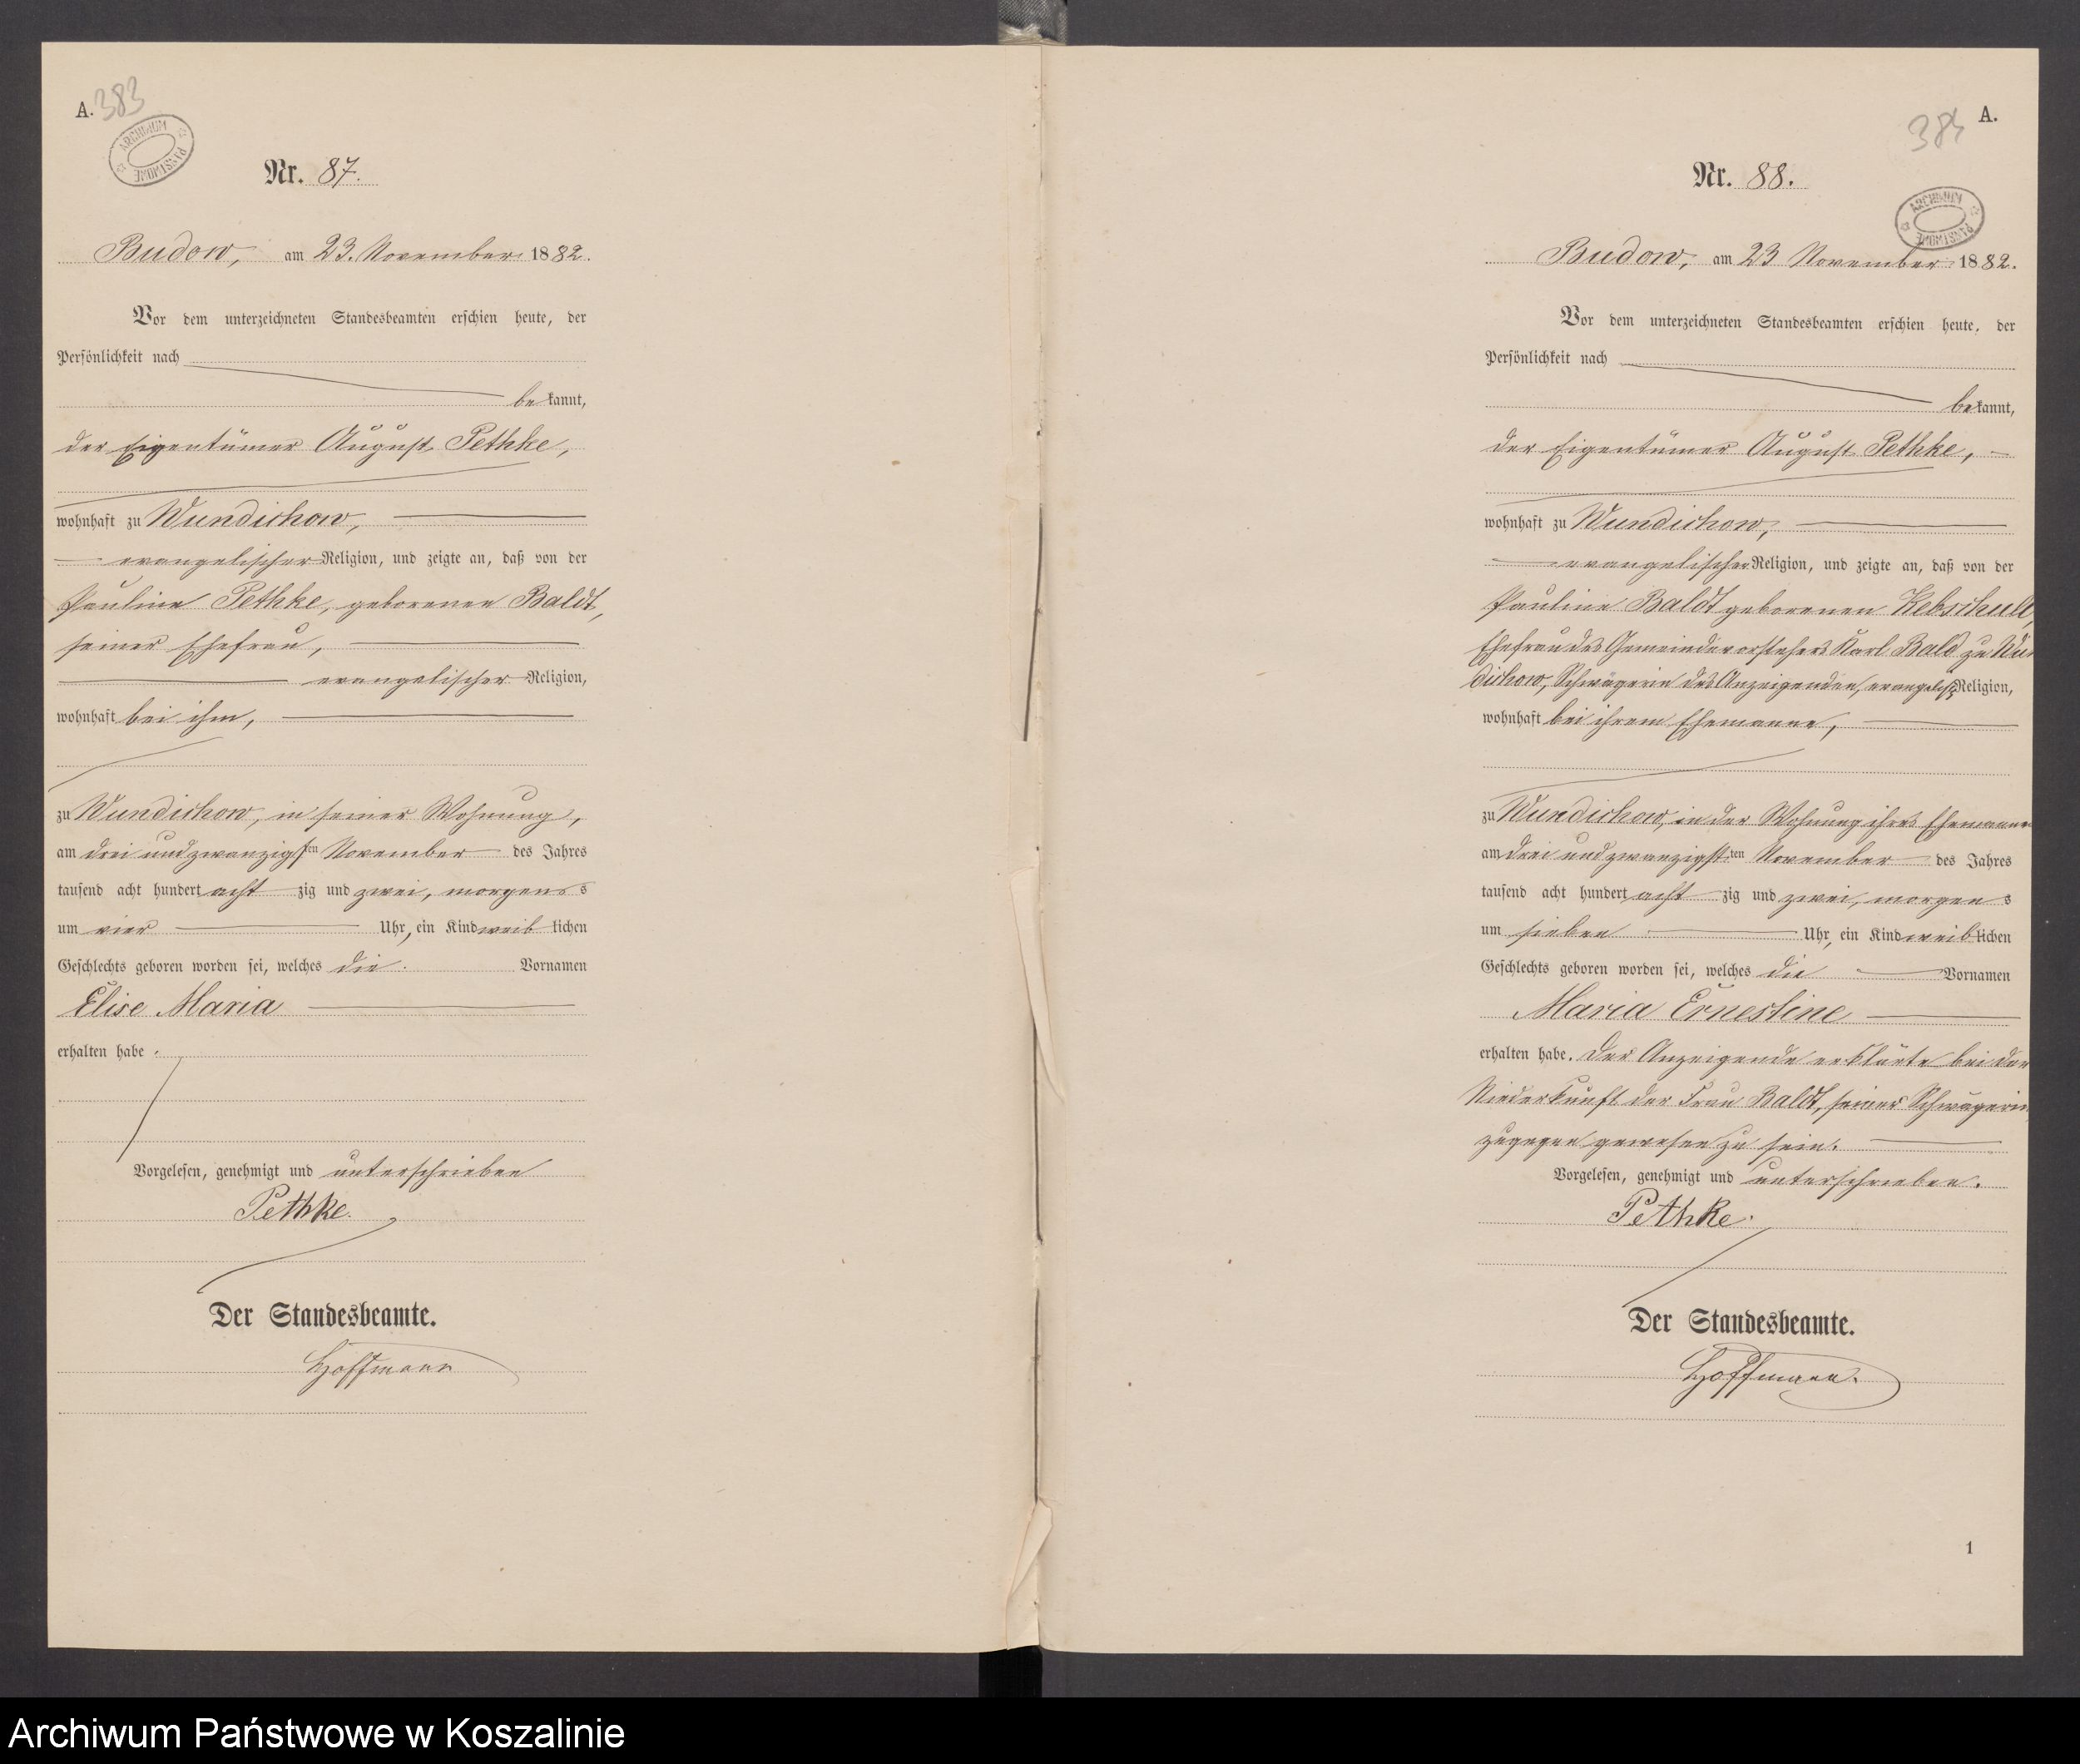 A. 383
ARCHIWUM PAŃSTWOWE
Nr. 87.
Budow, am 23. November 1882.
Vor dem unterzeichneten Standesbeamten erschien heute, der
Persönlichkeit nach
bekannt,
der Eigentümer August Pethke,
wohnhaft zu Wundichow,
evangelischer Religion, und zeigte an, daß von der
Pauline Pethke, geborenen Baldt,
seiner Ehefrau,
evangelischer Religion,
wohnhaft bei ihm,
zu Wundichow, in seiner Wohnung,
am drei und zwanzigsten November des Jahres
tausend acht hundert acht zig und zwei, morgens
um vier Uhr, ein Kind weiblichen
Geschlechts geboren worden sei, welches die Vornamen
Elise Maria
erhalten habe.
Vorgelesen, genehmigt und unterschrieben
Pethke.
Der Standesbeamte.
Hoffmann
384 A.
Nr. 88.
ARCHIWUM PAŃSTWOWE
Budow, am 23 November 1882.
Vor dem unterzeichneten Standesbeamten erschien heute, der
Persönlichkeit nach
bekannt,
der Eigentümer August Pethke,
wohnhaft zu Wundichow,
evangelischer Religion, und zeigte an, daß von der
Pauline Baldt geborenen Kebschull,
Ehefrau des Gemeindevorstehers Karl Bald zu Wun
dichow, Schwägerin des Anzeigenden, evangelisch Religion,
wohnhaft bei ihrem Ehemanne,
zu Wundichow, in der Wohnung ihres Ehemannes
am drei und zwanzigsten November des Jahres
tausend acht hundert acht zig und zwei, morgens
um sieben Uhr, ein Kind weiblichen
Geschlechts geboren worden sei, welches die Vornamen
Maria Ernestine
erhalten habe. Der Anzeigende erklärte bei der
Niederkunft der Frau Baldt, seiner Schwägerin
zugegen gewesen zu sein.
Vorgelesen, genehmigt und unterschrieben.
Pethke.
Der Standesbeamte.
Hoffmann.
1
Archiwum Państwowe w Koszalinie